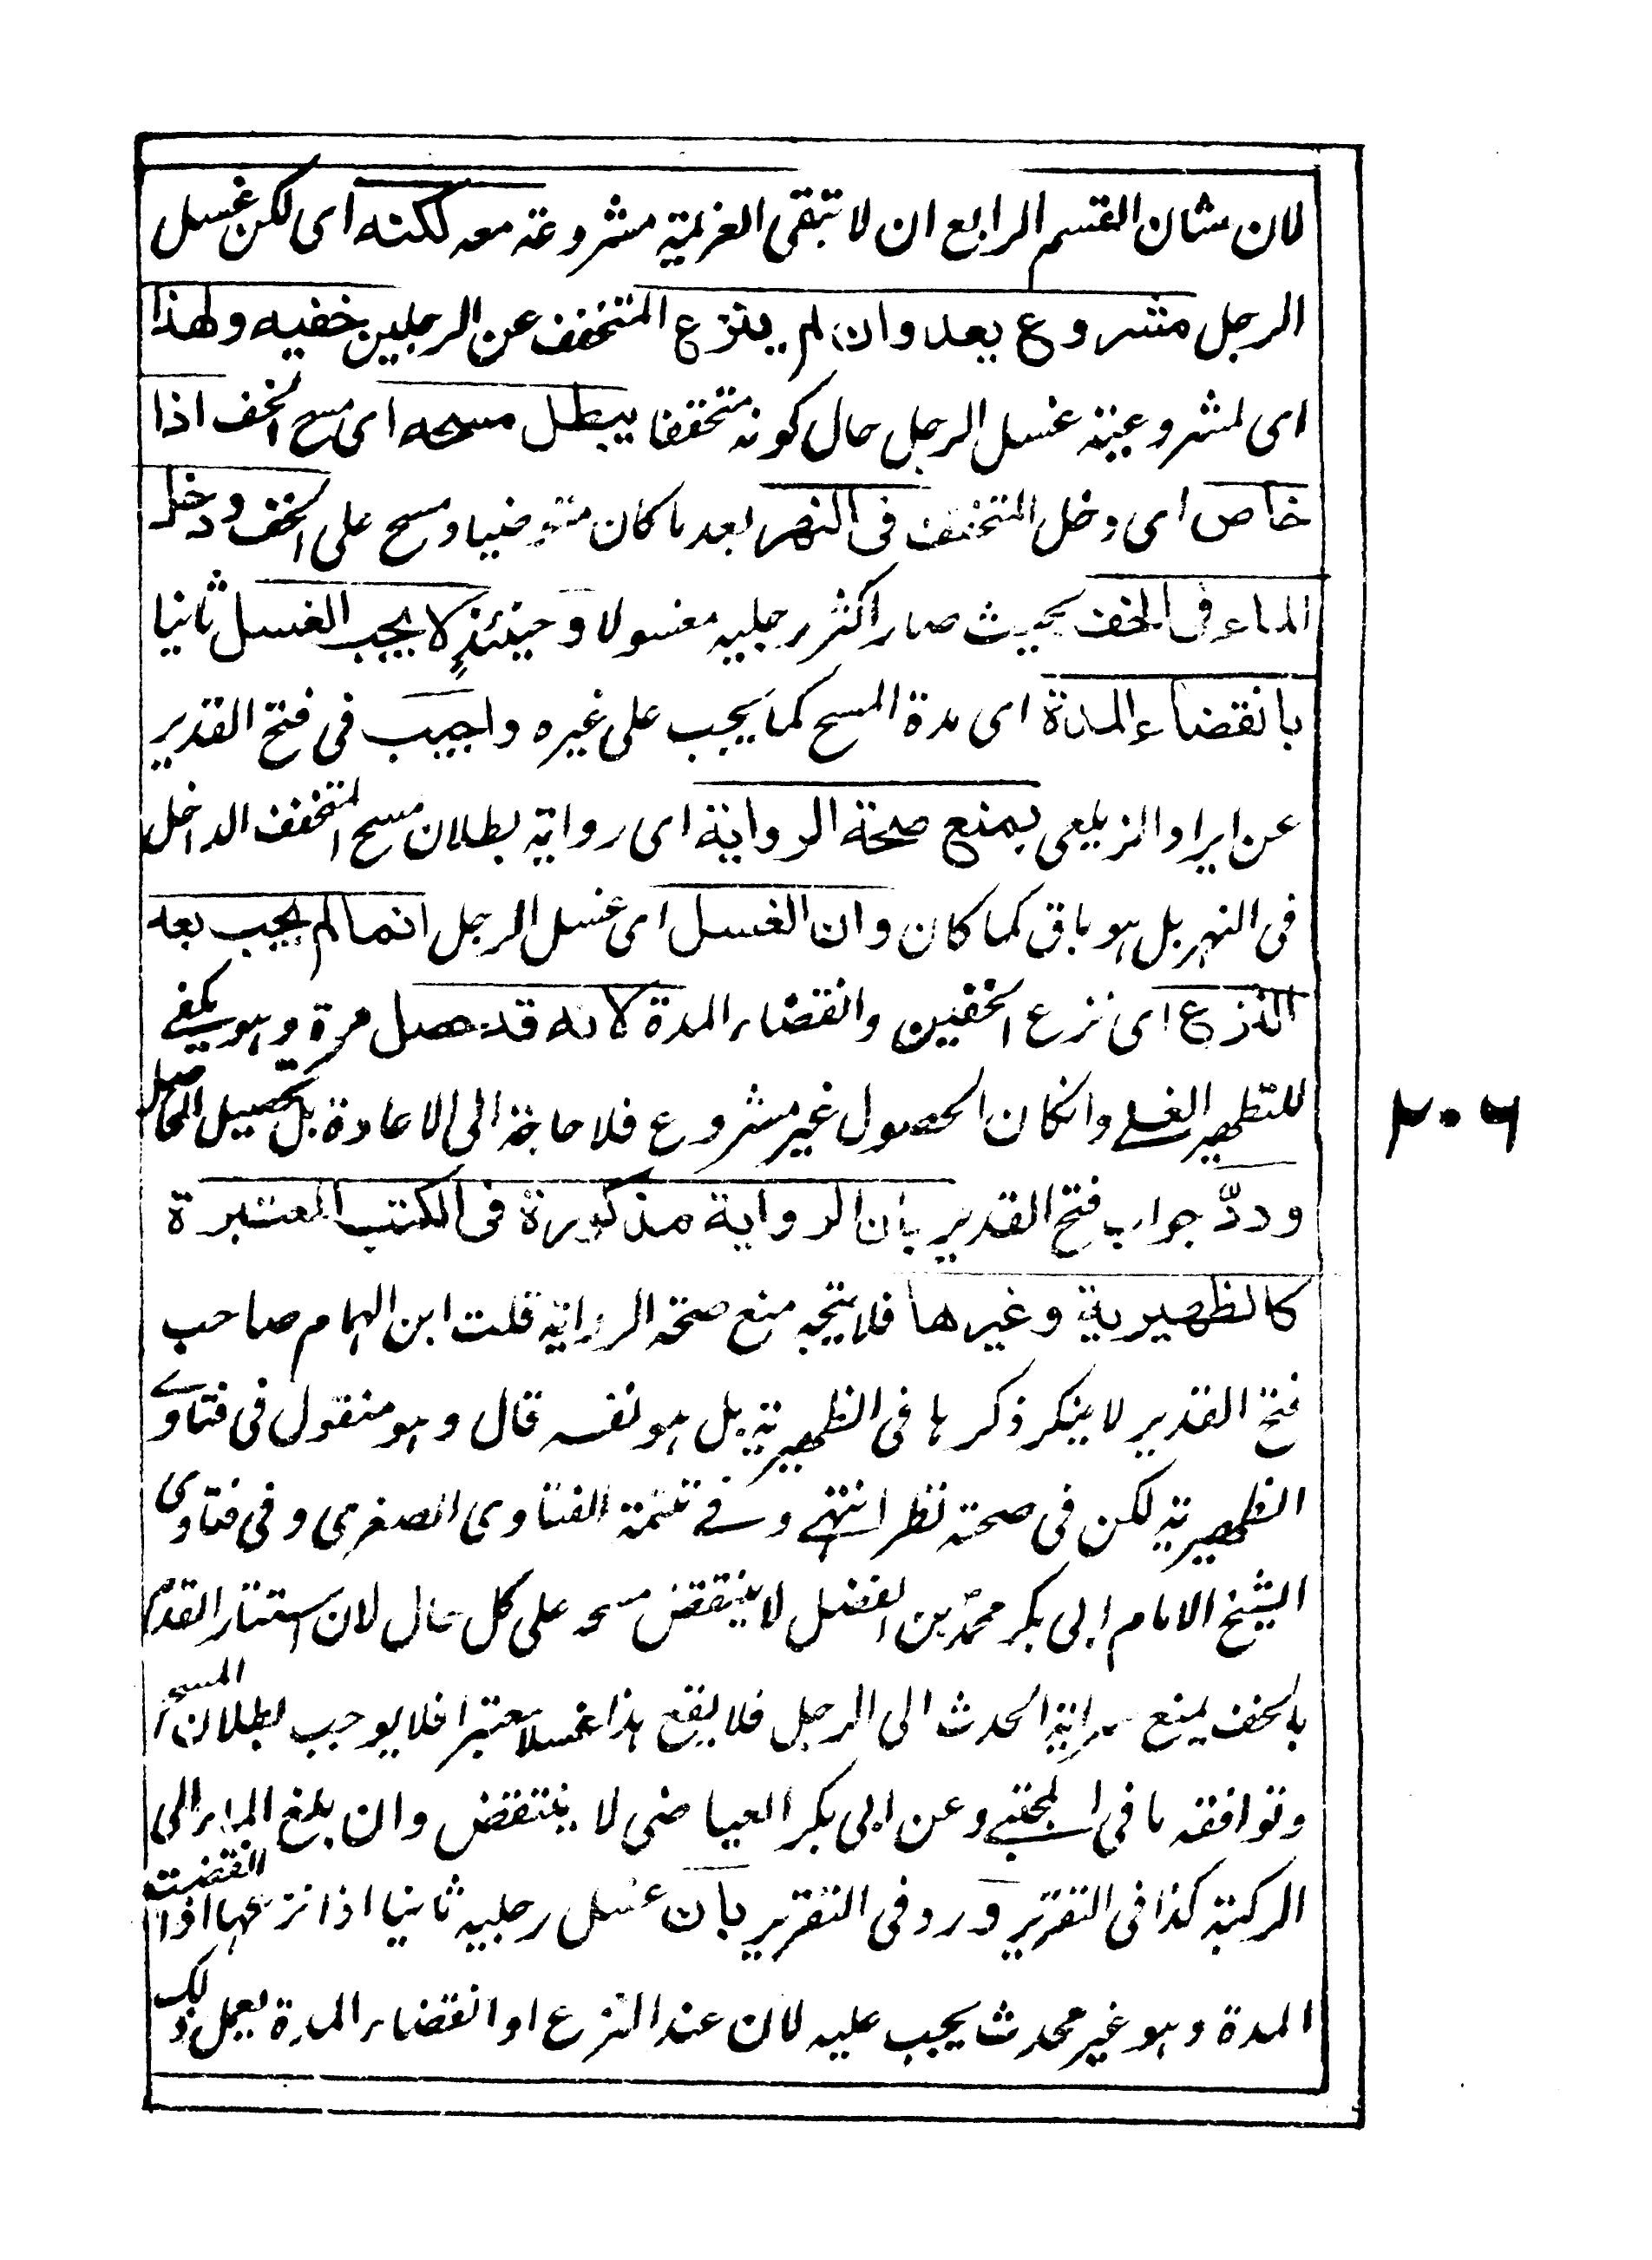 لان شان القسم الرابع ان لا تبقى العزيمة مشروعة معه لكنه اى لكن غسل
الرجل مشروع بعد وان لم ينزع المتخفف عن الرجلين خفيه ولهذا
اى لمشروعية غسل الرجل حال كونه متخففا يبطل مسحه اى مسح الخف اذا
خاض اى دخل المتخفف فى النهر بعد ما كان متوضيا ومسح على الخف ودخل
الماء فى الخف بحيث صار اكثر رجليه مغسولا وحينئذٍ لا يجب الغسل ثانيا
بانقضاء المدة اى مدة المسح كما يجب على غيره واجيب فى فتح القدير
عن ايراد الزيلعى بمنع صحة الرواية اى رواية بطلان مسح المتخفف الداخل
فى النهر بل هو باق كما كان وان الغسل اى غسل الرجل انما لم يجب بعد
النزع اى نزع الخفين وانقضاء المدة لانه قد حصل مرة وهو يكفے
للتطهير الغسلے وانكان الحصول غير مشروع فلا حاجة الى الاعادة بل تحصيل الحاصل
وردّ جواب فتح القدير بان الرواية مذكورة فى الكتب المعتبرة
كالظهيرية وغيرها فلا يتجه منع صحة الرواية قلت ابن الهمام صاحب
فتح القدير لا ينكر ذكرها فى الظهيرية بل هو نفسه قال وهو منقول فى فتاوے
الظهيرية لكن فى صحته نظر انتهے وفے تتمة الفتاوى الصغرى وفى فتاوى
الشيخ الامام ابى بكر محمد بن الفضل لا ينتقض مسحه على كل حال لان استتار القدم
بالخف يمنع سراية الحدث الى الرجل فلا يقع هذا غسلا معتبرا فلا يوجب بطلان المسح
وتوافقه ما فى المجتبے وعن ابى بكر العياضى لا ينتقض وان بلغ الماء الى
الركبة كذا فى التقرير ورد فى التقرير بان غسل رجليه ثانيا اذا نزعهما اذا انقضت
المدة وهو غير محدث يجب عليه لان عند النزع او انقضاء المدة يعمل ذلك
٢٠٦